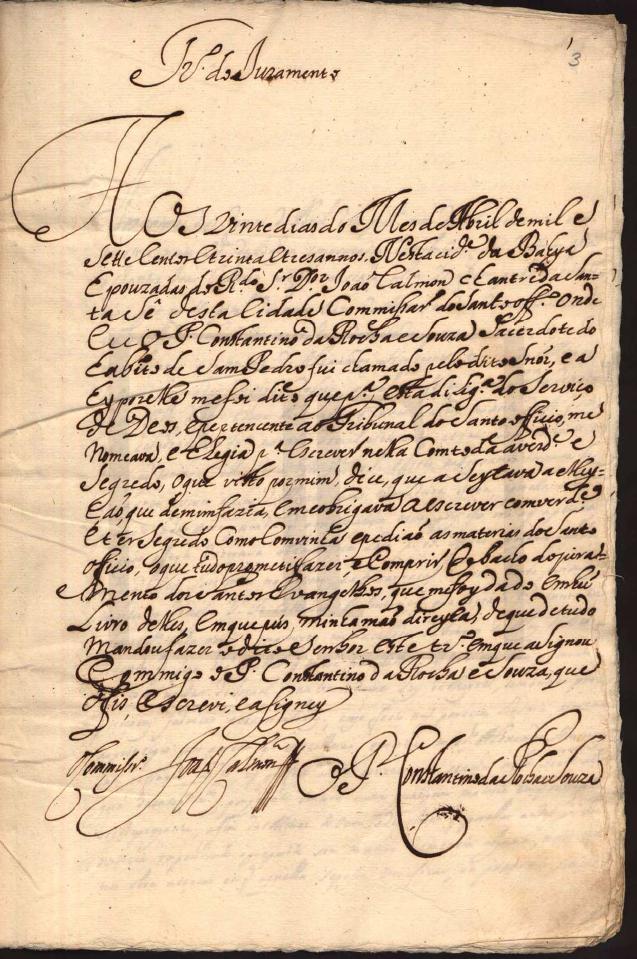 3
Tr.º do Juramento
AOs vinte dias do Mes de Abril de mil e
Sette Centos e trinta e tres annos. Nesta cid.e da Bahya
E pouzadas do R.do Sr. D.or João Calmon Chantre da San-
ta Sê desta Cidade Commissar.º do Santo off.º onde
Eu o P. Constantino da Rocha e Souza Sacerdote do
habito de Sam Pedro fui chamado pelo dito Snór, e a
hy por elle me foi dito que p.ª esta dilig.ª do Serviço
de Deos, e pertencente ao Tribunal do Santo officio, me
Nomeava, e Elegia p.ª Escrever nella Com toda a verd.e e
Segredo, o que visto por mim, dice, que aceytava a elley-
ção, que de mim fazia, e me obrigava a escrever com verd.e
e ter Segredo Como Convinha e pedião as materias do Santo
officio, o que tudo prometi fazer, e Comprir Debacho do jura-
mento dos Santos Evangelhos, que me foy dado em hũ
Livro delles, em que pus minha mão direyta, de que de tudo
Mandou fazer o dito Senhor este tr.º em que asignou
Commigo o P. Constantino da Rocha e Souza, que
o fis, e escrevi, e asigney
O Commissr.º João Calmon
O P.e Constantino da Rocha e Souza